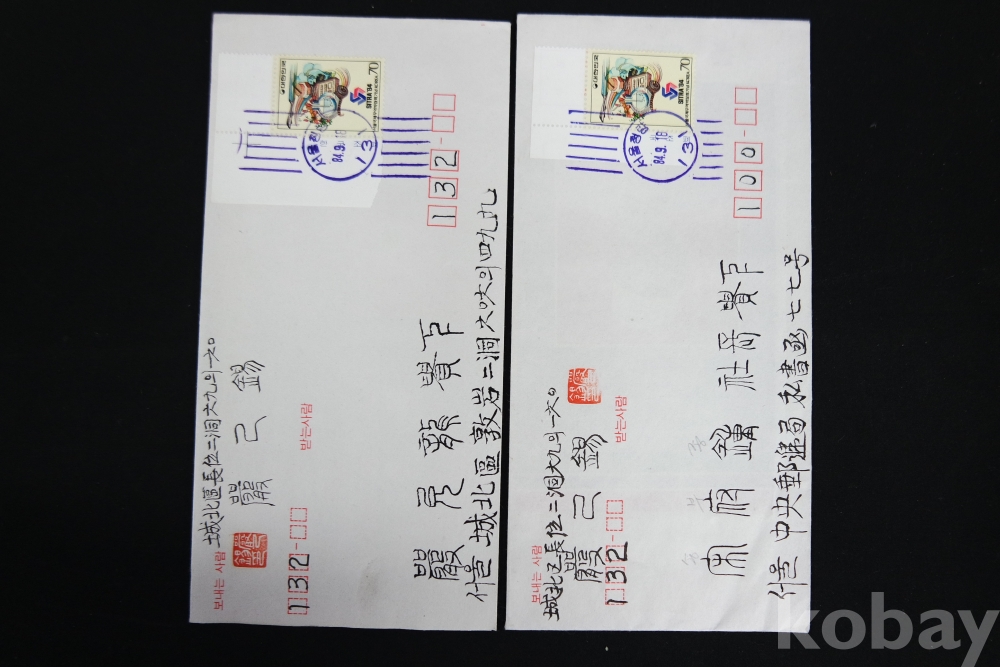 대한민국
70
SITRA '84
서울
84.9.18
131
132-
보내는 사람
城北區長位二洞六九의一六〇
嚴己錫
132-
받는사람
서울 城北區敦岩二洞六〇六의四九九
嚴 龍 貴下
대한민국
70
SITRA '84
서울
84.9.18
131
100-
보내는 사람
城北区長位二洞六九의一六〇
嚴己錫
132-
받는사람
서울 中央郵遞局私書函七七号
社長 貴下
kobay